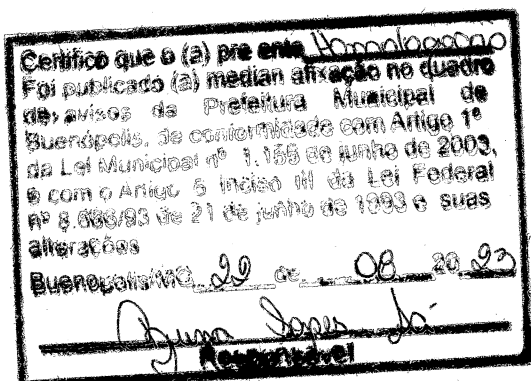 Certifico que o (a) presente Homologação
Foi publicado (a) median afixação no quadro
de avisos da Prefeitura Municipal de
Buenópolis, de conformidade com Artigo 1º
da Lei Municipal nº 1.155 de junho de 2003,
e com o Artigo 6 inciso III da Lei Federal
nº 8.666/93 de 21 de junho de 1993 e suas
alterações
Buenopolis/MG 29 de 08 20 23
Bruna Lopes Sá
Responsável